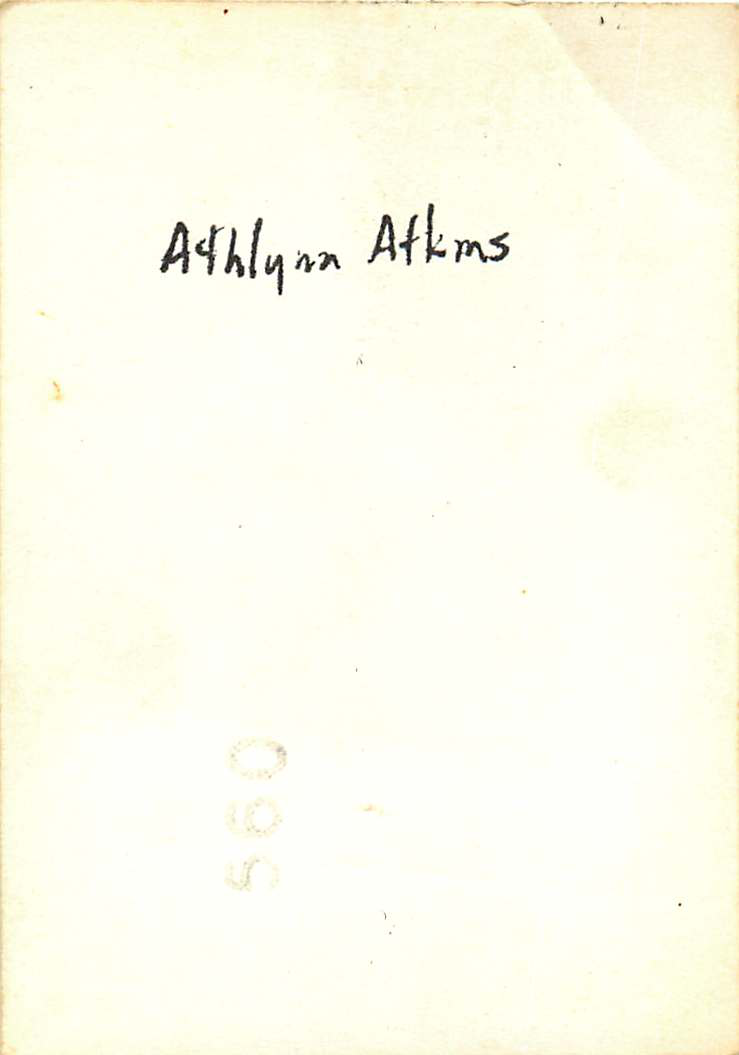 Athlynn Atkins
560